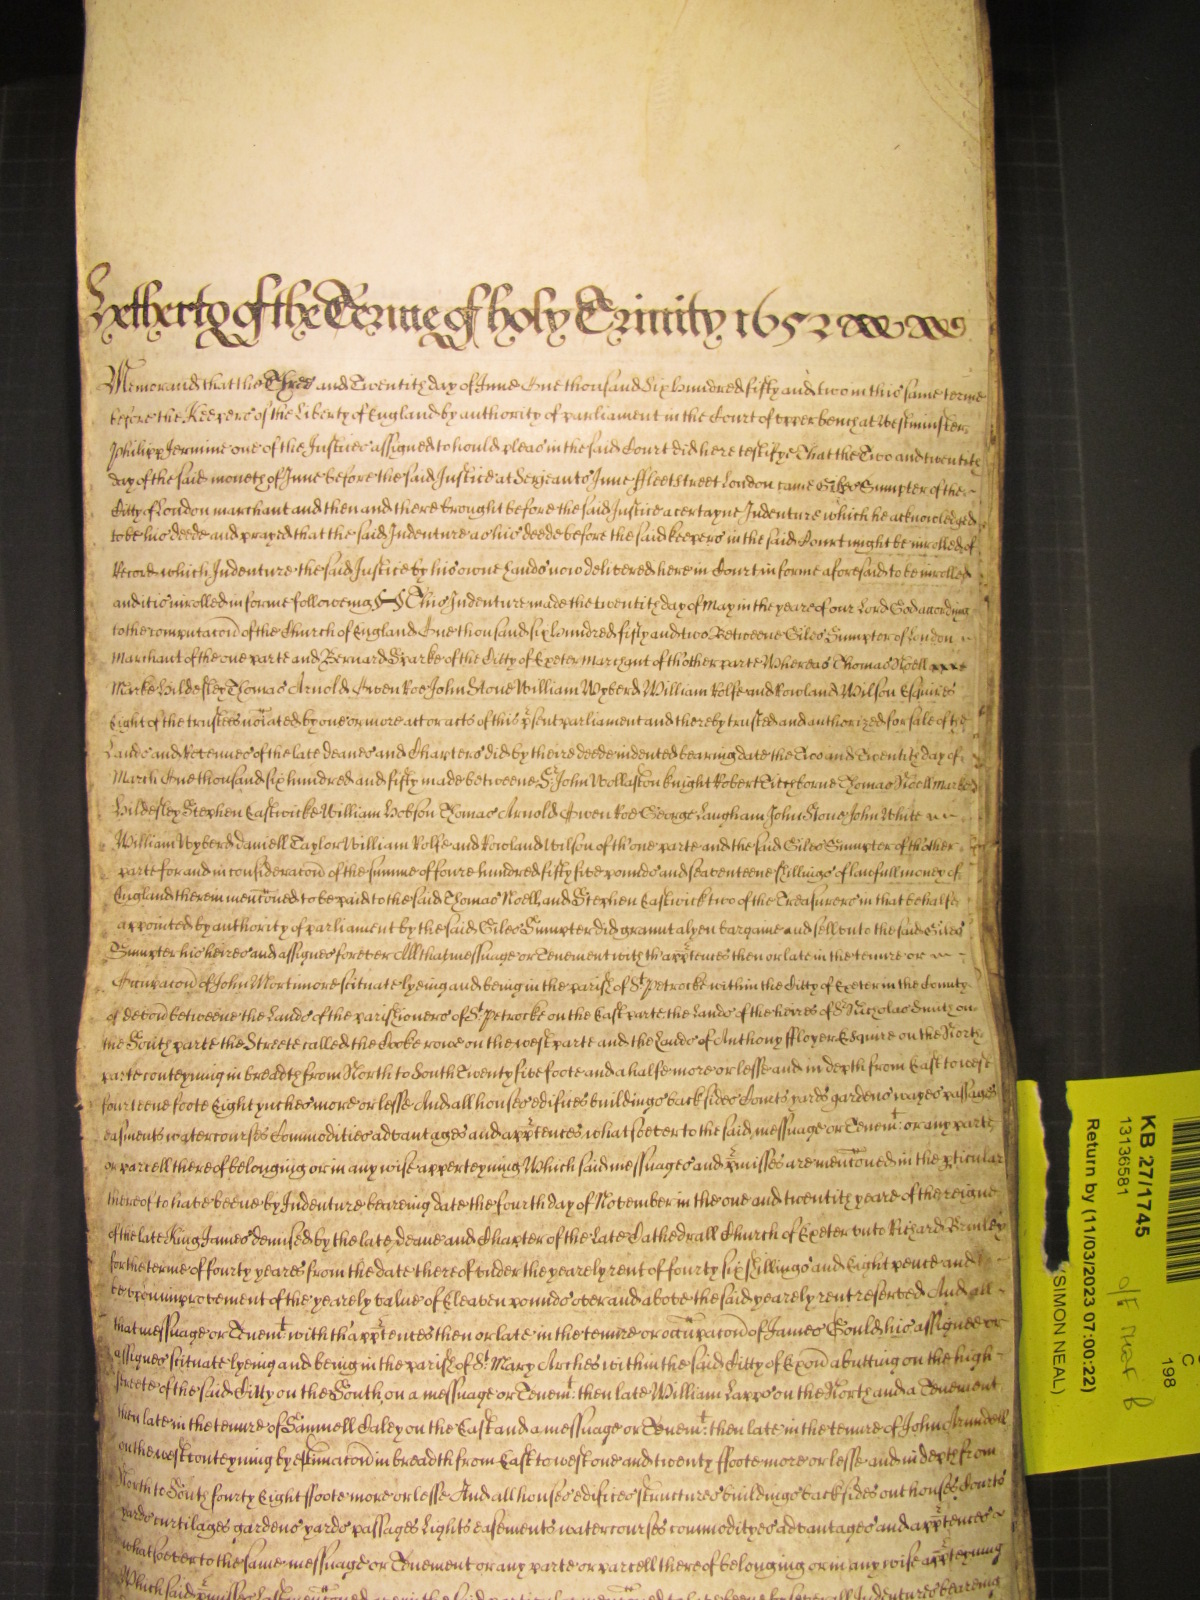 Hetherto of the Terme of holy Trinity 1652
Memorand that the Three and Twentith day of June One thousand Six hundred fifty and two in this same terme
before the Keepers of the Liberty of England by authority of parliament in the Court of upper bench at Westminster
Phillipp Jermine one of the Justices assigned to hould pleas in the said Court did here testifye That the Two and twentith
day of the said moneth of June before the said Justice at Serjeants Inne ffleetstreet London came Giles Sumpter of the
Citty of London marchant and then and there brought before the said Justice a certayne Indenture which he acknowledged
to be his deede and prayed that the said Indenture as his deede before the said keepers in the said Court might be inrolled of
Record which Indenture the said Justice by his owne hands now delivered here in Court in forme aforesaid to be inrolled
and it is inrolled in forme followeing ss This Indenture made the twentith day of May in the yeare of our Lord God according
to the computacon of the Church of England One thousand six hundred fifty and two Betweene Giles Sumpter of London
Marchant of the one parte and Bernard Sparke of the Citty of Exeter Marchant of thother parte Whereas Thomas Noell
Marke Hildesley Thomas Arnold Owen Roe John Stone William Wyberd William Rolfe and Rowland Wilson Esquires
Eight of the trustees noiated by one or more act or acts of this psent parliament and thereby trusted and authorized for sale of the
Landes and Revenues of the late deanes and Chapters did by theire deede indented bearing date the Two and Twentith day of
March One thousand six hundred and fifty made betweene Sr John Wollaston knight Robert Titchborne Thomas Noell Marke
Hildesley Stephen Eastwicke William Hobson Thomas Arnold Owen Roe George Langham John Stone John White
William Wyberd Daniell Taylor William Rolfe and Rowland Wilson of thone parte and the said Giles Sumpter of thother
parte for and in consideracon of the summe of foure hundred fifty five pounds and seaventeene shillings of lawfull money of
England therein mencioned to be paid to the said Thomas Noell and Stephen Eastwick two of the Treasurers in that behalfe
appointed by authority of parliament by the said Giles Sumpter did graunt alyen bargaine and sell unto the said Giles
Sumpter his heires and assignes forever All that messuage or Tenement with th apptences then or late in the tenure or
Occupacon of John Mortimore scituate lyeing and being in the parish of St Petrocke within the Citty of Exeter in the County
of devon betweene the Lands of the parishioners of St Petrocke on the East parte the Lands of the heires of Sr Nicholas Smith on
the South parte the Streete called the Cooke rowe on the west parte and the Lands of Anthony ffloyer Esquire on the North
parte conteyning in breadth from North to South Twenty five foote and a halfe more or lesse and in depth from East to west
fourteene foote Eight ynches more or lesse And all houses edifices buildings backsides Courts yards gardens wayes passages
easments watercourses Commodities advantages and apptences whatsoever to the said messuage or Tenemt or any parte
or parcell thereof belonging or in any wise apperteyning Which said messuages and pmisses are mencioned in the pticular
thereof to have beene by Indenture beareing date the fourth day of November in the one and twentith yeare of the reigne
of the late King James demised by the late deane and Chapter of the Late Cathedrall Church of Exeter unto Richard
for the terme of fourty yeares from the date thereof under the yearely rent of fourty six shillings and Eight pence and
be upon improvement of the yearely value of Eleaven pounds over and above the said yearely rent reserved And all
that messuage or Tenemt with th apptences then or late in the tenure or occupacon of James Gould his assignee or
assignes scituate lyeing and being in the parish of St Mary Arches within the said Citty of Exon abutting on the high
streete of the said Citty on the South, on a messuage or Tenemt then late William Lapps on the North and a Tenement
then late in the tenure of Samuell Caley on the East and a messuage or Tenemt then late in the tenure of John Arundell
on the west conteyning by estimacon in breadth from East to west one and twenty ffoote more or lesse and in depth from
North to South fourty Eight ffoote more or lesse And all houses edifices structures buildings backsides outhouses Courts
yards curtilages gardens yards passages Lights easements watercourses commodityes advantages and apptences
whatsoever to the same messuage or Tenement or any parte or parcell thereof belonging or in any wise apperteyning
Which said pmisses
KB 27/1745
13136581
Return by (11/03/2023 07:00:22)
(SIMON NEAL)
C
198